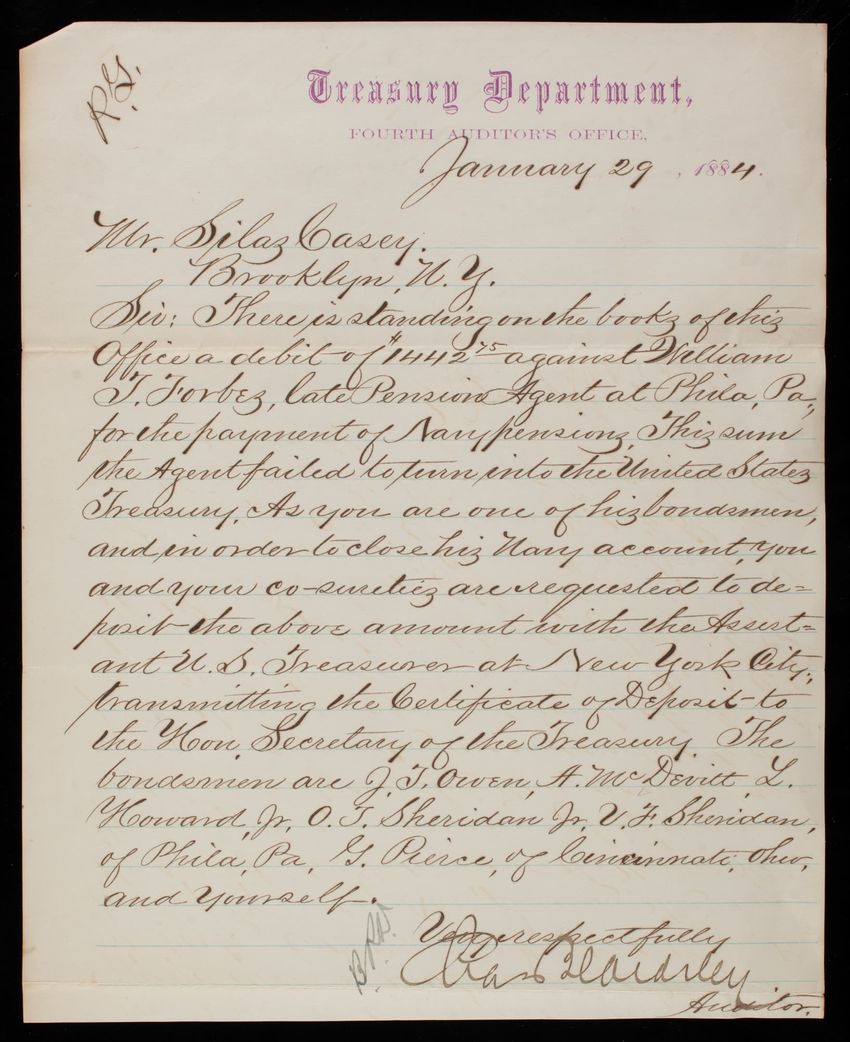 R.G.
Treasury Department,
FOURTH AUDITOR'S OFFICE.
January 29, 1884.
Mr. Silas Casey.
Brooklyn, N. Y.
Sir: There is standing on the books of this
Office a debit of $1442 75 against William
T. Forbes, late Pension Agent at Phila, Pa.,
for the payment of Navy pensions. This sum
the Agent failed to turn into the United States
Treasury. As you are one of his bondsmen,
and in order to close his Navy account, you
and your co-sureties are requested to de=
posit the above amount with the Assist=
ant U. S. Treasurer at New York City,
transmitting the Certificate of Deposit to
the Hon. Secretary of the Treasury. The
bondsmen are J. T. Owen, A. McDevitt, L.
Howard, Jr, O. T. Sheridan Jr, V. F. Sheridan,
of Phila, Pa, G. Pierce, of Cincinnati, Ohio,
and yourself.
Very respectfully
Chas Beardsley
Auditor.